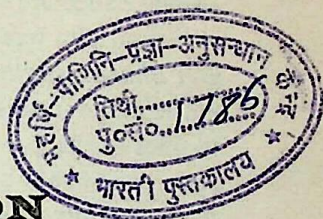 महर्षि-पाणिनि-प्रज्ञा-अनुसन्धान केन्द्र
तिथी...............
पु०सं०...1786
* भारती पुस्तकालय *
ON